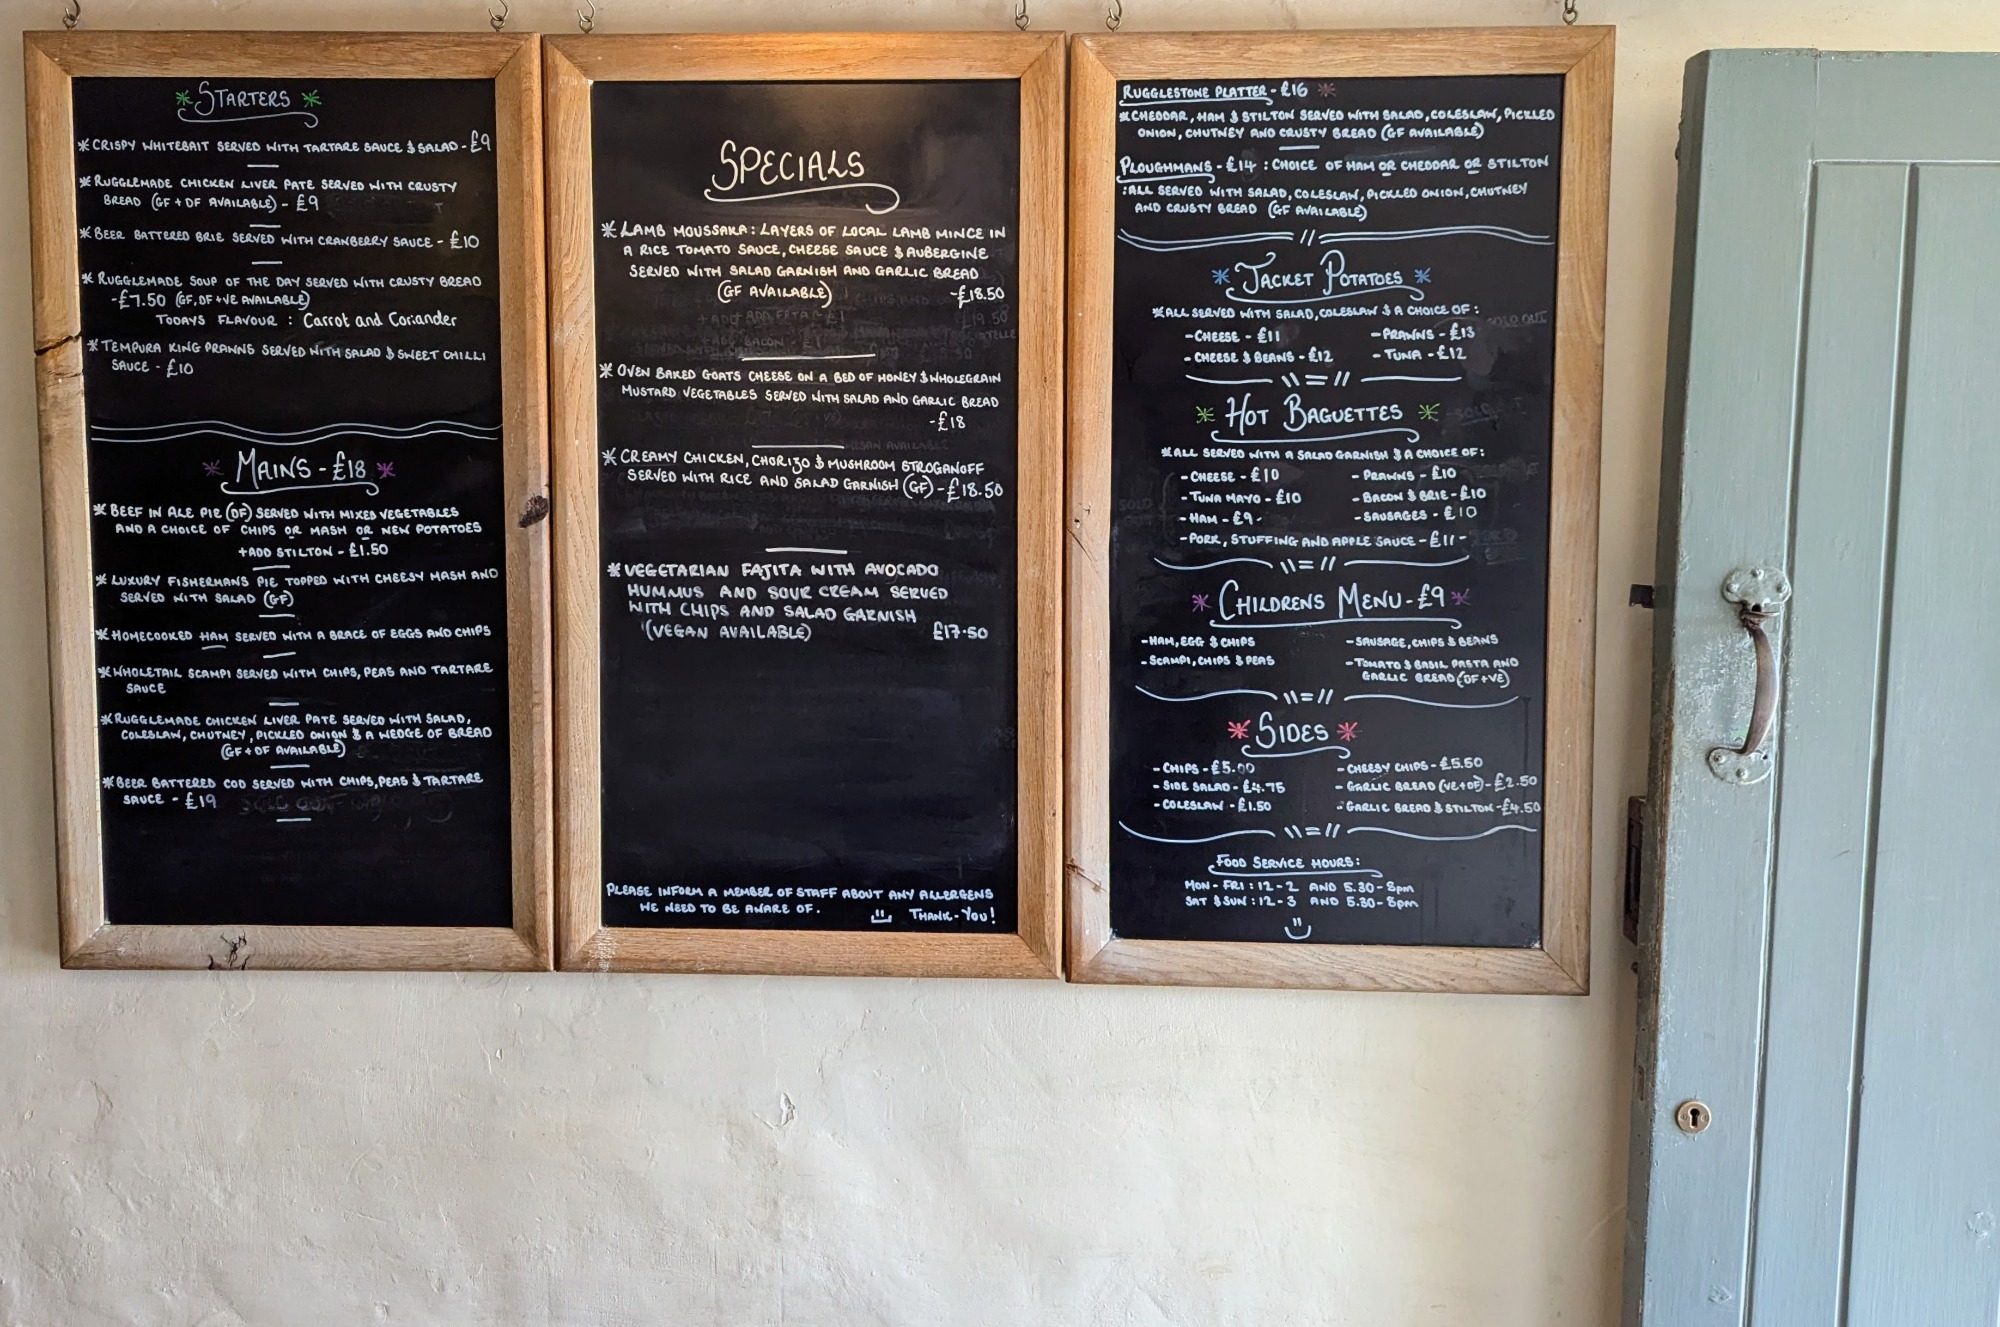 STARTERS
CRISPY WHITEBAIT SERVED WITH TARTARE SAUCE & SALAD - £9
RUGGLEMADE CHICKEN LIVER PATE SERVED WITH CRUSTY
BREAD (GF + DF AVAILABLE) - £9
BEER BATTERED BRIE SERVED WITH CRANBERRY SAUCE - £10
RUGGLEMADE SOUP OF THE DAY SERVED WITH CRUSTY BREAD
-£7.50 (GF, DF + VE AVAILABLE)
TODAYS FLAVOUR : Carrot and Coriander
TEMPURA KING PRAWNS SERVED WITH SALAD & SWEET CHILLI
SAUCE - £10
MAINS - £18
BEEF IN ALE PIE (DF) SERVED WITH MIXED VEGETABLES
AND A CHOICE OF CHIPS OR MASH OR NEW POTATOES
+ADD STILTON - £1.50
LUXURY FISHERMANS PIE TOPPED WITH CHEESY MASH AND
SERVED WITH SALAD (GF)
HOMECOOKED HAM SERVED WITH A BRACE OF EGGS AND CHIPS
WHOLETAIL SCAMPI SERVED WITH CHIPS, PEAS AND TARTARE
SAUCE
RUGGLEMADE CHICKEN LIVER PATE SERVED WITH SALAD,
COLESLAW, CHUTNEY, PICKLED ONION & A WEDGE OF BREAD
(GF + DF AVAILABLE)
BEER BATTERED COD SERVED WITH CHIPS, PEAS & TARTARE
SAUCE - £19
SPECIALS
LAMB MOUSSAKA : LAYERS OF LOCAL LAMB MINCE IN
A RICE TOMATO SAUCE, CHEESE SAUCE & AUBERGINE
SERVED WITH SALAD GARNISH AND GARLIC BREAD
(GF AVAILABLE) -£18.50
OVEN BAKED GOATS CHEESE ON A BED OF HONEY & WHOLEGRAIN
MUSTARD VEGETABLES SERVED WITH SALAD AND GARLIC BREAD
-£18
CREAMY CHICKEN, CHORIZO & MUSHROOM STROGANOFF
SERVED WITH RICE AND SALAD GARNISH (GF) - £18.50
VEGETARIAN FAJITA WITH AVOCADO
HUMMUS AND SOUR CREAM SERVED
WITH CHIPS AND SALAD GARNISH
(VEGAN AVAILABLE) £17.50
PLEASE INFORM A MEMBER OF STAFF ABOUT ANY ALLERGENS
WE NEED TO BE AWARE OF. THANK-YOU!
RUGGLESTONE PLATTER - £16
CHEDDAR, HAM & STILTON SERVED WITH SALAD, COLESLAW, PICKLED
ONION, CHUTNEY AND CRUSTY BREAD (GF AVAILABLE)
PLOUGHMANS - £14 : CHOICE OF HAM OR CHEDDAR OR STILTON
:ALL SERVED WITH SALAD, COLESLAW, PICKLED ONION, CHUTNEY
AND CRUSTY BREAD (GF AVAILABLE)
JACKET POTATOES
ALL SERVED WITH SALAD, COLESLAW & A CHOICE OF :
- CHEESE - £11 - PRAWNS - £13
- CHEESE & BEANS - £12 - TUNA - £12
HOT BAGUETTES
ALL SERVED WITH A SALAD GARNISH & A CHOICE OF :
- CHEESE - £10 - PRAWNS - £10
- TUNA MAYO - £10 - BACON & BRIE - £10
- HAM - £9 - - SAUSAGES - £10
- PORK, STUFFING AND APPLE SAUCE - £11 -
CHILDRENS MENU - £9
- HAM, EGG & CHIPS - SAUSAGE, CHIPS & BEANS
- SCAMPI, CHIPS & PEAS - TOMATO & BASIL PASTA AND
GARLIC BREAD (DF + VE)
SIDES
- CHIPS - £5.00 - CHEESY CHIPS - £5.50
- SIDE SALAD - £4.75 - GARLIC BREAD (VE + DF) - £2.50
- COLESLAW - £1.50 - GARLIC BREAD & STILTON - £4.50
FOOD SERVICE HOURS :
MON - FRI : 12 - 2 AND 5.30 - 8pm
SAT & SUN : 12 - 3 AND 5.30 - 8pm